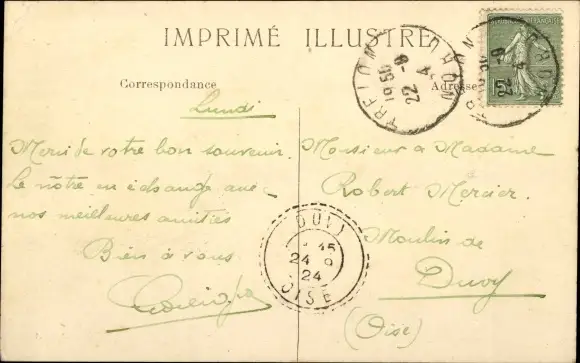 IMPRIMÉ ILLUSTRÉ
Correspondance
Adresse
Lundi
Merci de votre bon souvenir.
Le nôtre en échange avec
nos meilleures amitiés
Bien à vous
Monsieur & Madame
Robert Mercier
Moulin de
Duvy
(Oise)
TRELON NORD
22 - 9
24
DUVY
15
24 9
24
OISE
RÉPUBLIQUE FRANÇAISE
15